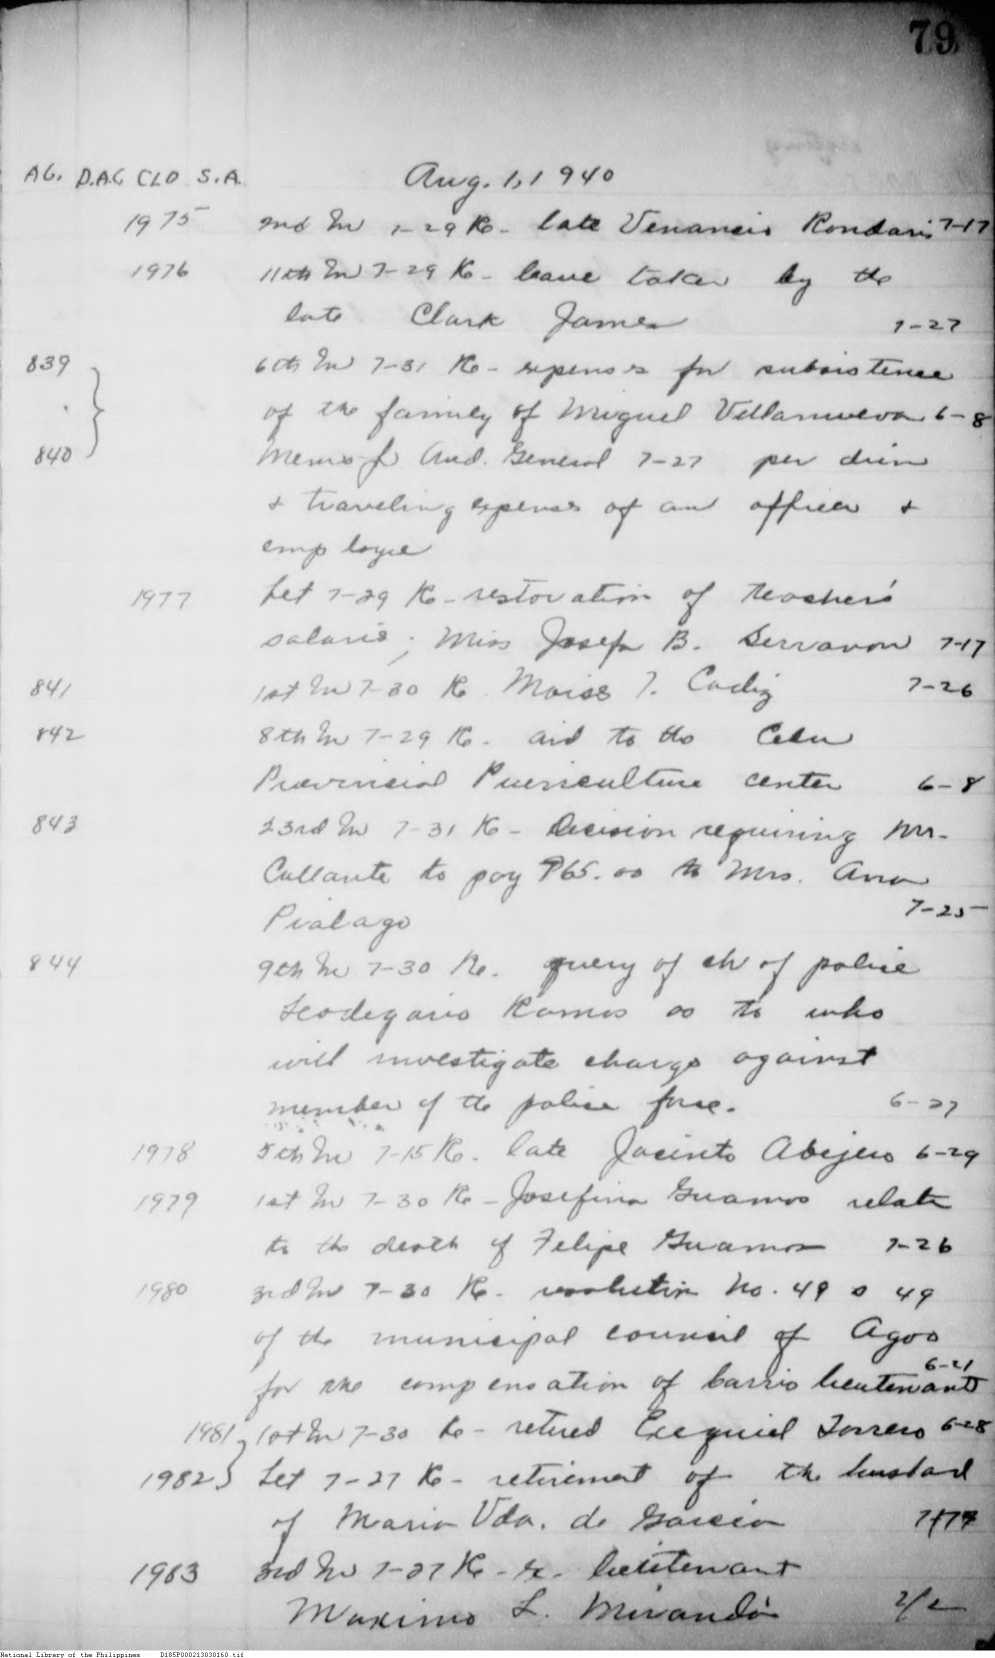 79
AG. D.AG CLO S.A. Aug. 1, 1940
1975 2nd In 7-29 Re- late Venancio Rondaris 7-17
1976 11th In 7-29 Re- leave taken by the
late Clark James 7-27
839 6th In 7-31 Re- expenses for subsistence
of the family of Miguel Villanueva 6-8
840 Memo fr Aud. General 7-27 per diem
& traveling expenses of an officer &
employee
1977 Let 7-29 Re- restoration of teachers'
salaries; Miss Josefa B. 7-17
841 1st In 7-30 Re Moises T. Cadiz 7-26
842 8th In 7-29 Re- aid to the Cebu
Provincial Puericulture center 6-8
843 23rd In 7-31 Re- Decision requiring Mr.
Collante to pay ₱65.00 to Mrs. Ana
Pialago 7-25
844 9th In 7-30 Re. query of ch of police
Leodegario Ramos as to who
will investigate charge against
member of the police force. 6-27
1978 5th In 7-15 Re. late Jacinto Abejero 6-29
1979 1st In 7-30 Re- Josefina Guamos relate
to the death of Felipe Guamos 7-26
1980 3rd In 7-30 Re- resolution No. 49 s 49
of the municipal council of Agoo
6-21
for the compensation of barrio lieutenants
1981 1st In 7-30 Re- retired Ezequiel Torrero 6-28
1982 Let 7-27 Re- retirement of the husband
of Maria Vda. de Garcia
1983 3rd In 7-27 Re- Ex- lieutenant
Maximo L. Miranda 2/2
National Library of the Philippines D185P000213030160.tif